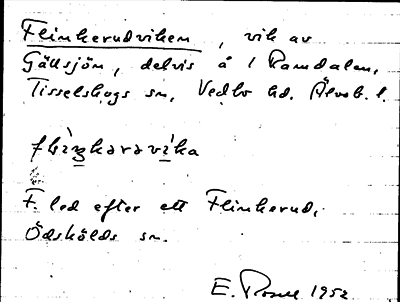 Flinkerudviken, vik av
Gällsjön, delvis å 1 Ramdalen,
Tisselskogs sn, Vedbo hd. Älvsb. l.
flìŋkərəvíka
F. led efter ett Flinkerud,
Ödskölds sn.
E. 1952